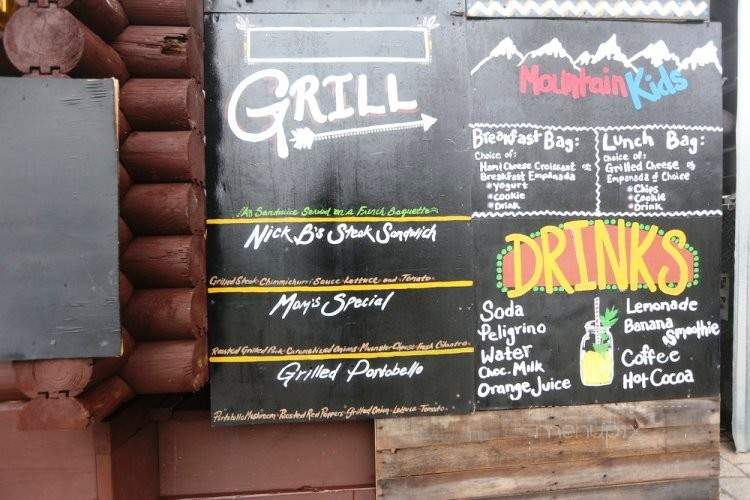 GRILL
All Sandwice Served on a French Baguette
Nick B's Steak Sandwich
Grilled Steak - Chimmichurri Sauce - Lettuce and Tomato
Mom's Special
Roasted Grilled Pork - Caramalized Onions - Muenster Cheese - Fresh Cilantro
Grilled Portobello
Portobello Mushroom - Roasted Red Peppers - Grilled Onion - Lettuce - Tomato
Mountain Kids
Breakfast Bag:
Choice of:
Ham & Cheese Croissant or
Breakfast Empanada
*yogurt
*cookie
*Drink
Lunch Bag:
Choice of:
Grilled Cheese or
Empanada of Choice
*Chips
*Cookie
*Drink
DRINKS
Soda
Peligrino
Water
Choc. Milk
Orange Juice
Lemonade
Banana
Smoothie
Coffee
Hot Cocoa
menupix